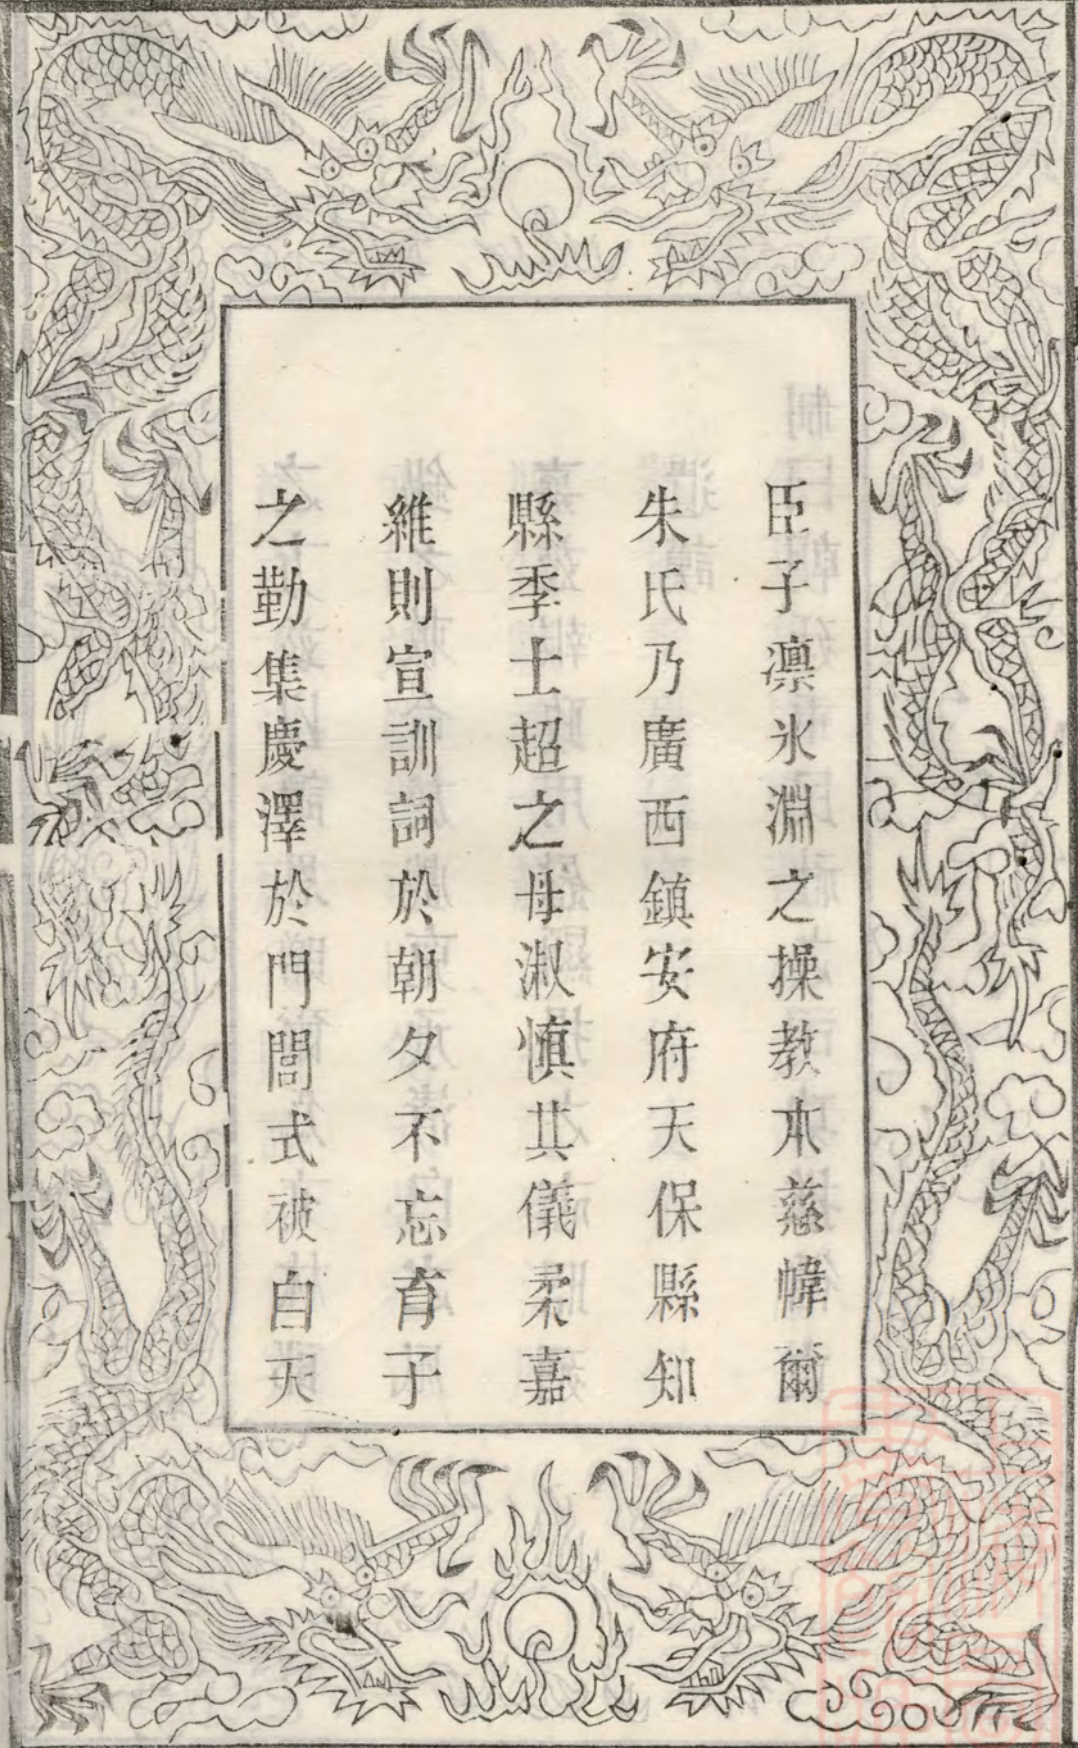 臣子凛氷淵之操教本慈幃爾
朱氏乃廣西鎮安府天保縣知
縣季士超之母淑慎其儀柔嘉
維則宣訓詞於朝夕不忘育子
之勤集慶澤於門閭式被自天